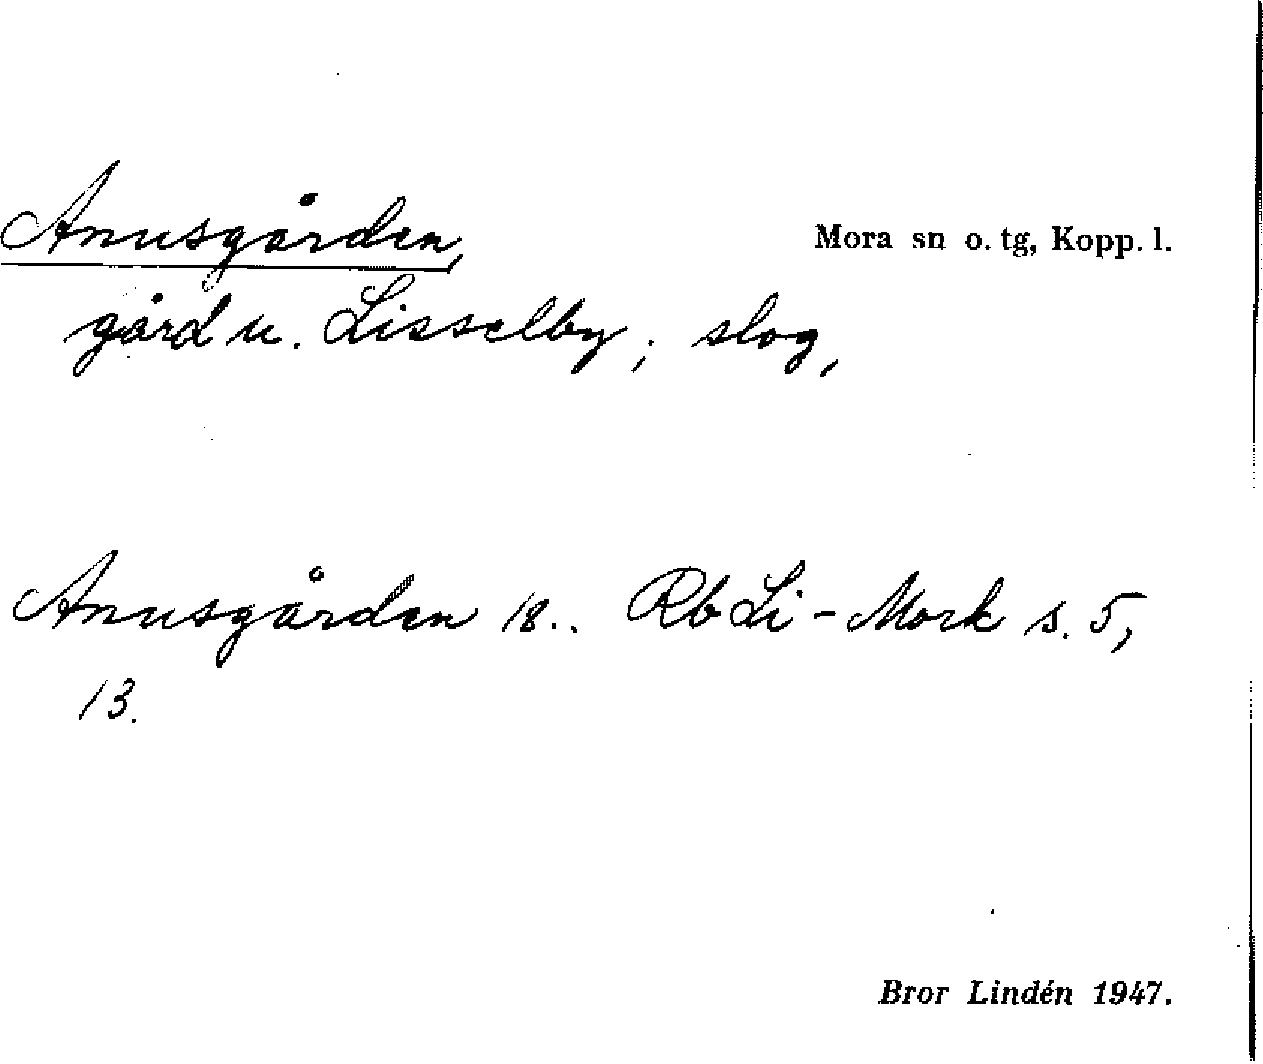 Anusgården, Mora sn o. tg, Kopp. l.
gård u. Lisselby; slog,
Anusgården 18.. Rb Li-Mork s. 5,
13.
Bror Lindén 1947.